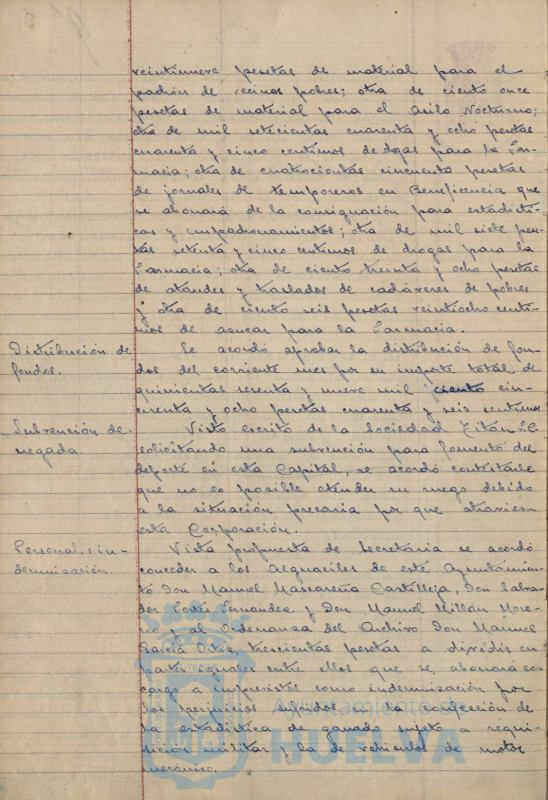 veintinueve pesetas de material para el
padrón de vecinos pobres; otra de ciento once
pesetas de material para el Asilo Nocturno;
otra de mil setecientas cuarenta y ocho pesetas
cuarenta y cinco centimos de drogas para la Far-
macia; otra de cuatrocientas cincuenta pesetas
de jornales de temporeros en Beneficencia que
se abonará de la consignación para estadísti-
cas y empadronamientos; otra de mil siete pese-
tas setenta y cinco centimos de drogas para la
Farmacia; otra de ciento treinta y ocho pesetas
de ataudes y traslados de cadáveres de pobres
y otra de ciento seis pesetas veintiocho centi-
mos de azucar para la Farmacia.
Distribución de
fondos.
Se acordó aprobar la distribución de fon-
dos del corriente mes por su importe total de
quinientas sesenta y nueve mil ciento cin-
cuenta y ocho pesetas cuarenta y seis centimos
Subvención de-
negada
Visto escrito de la Sociedad Titán F.C.
solicitando una subvención para fomento del
deporte en esta Capital, se acordó contestarle
que no es posible atender su ruego debido
a la situación precaria por que atraviesa
esta Corporación.
Personal: in-
demnización.
Vista propuesta de Secretaria se acordó
conceder a los Alguaciles de este Ayuntamien-
to Don Manuel Mascareña Castilleja, Don Salva-
dor Cortés Fernandez y Don Manuel Millán More-
no y al Ordenanza del Archivo Don Manuel
García Ortiz, trescientas pesetas a dividir en
partes iguales entre ellos que se abonará con
cargo a imprevistos como indemnización por
los perjuicios sufridos en la confección de
la estadística de ganado sujeto a requi-
sición militar y la de vehiculos de motor
mecánico.
Ayuntamiento de
HUELVA